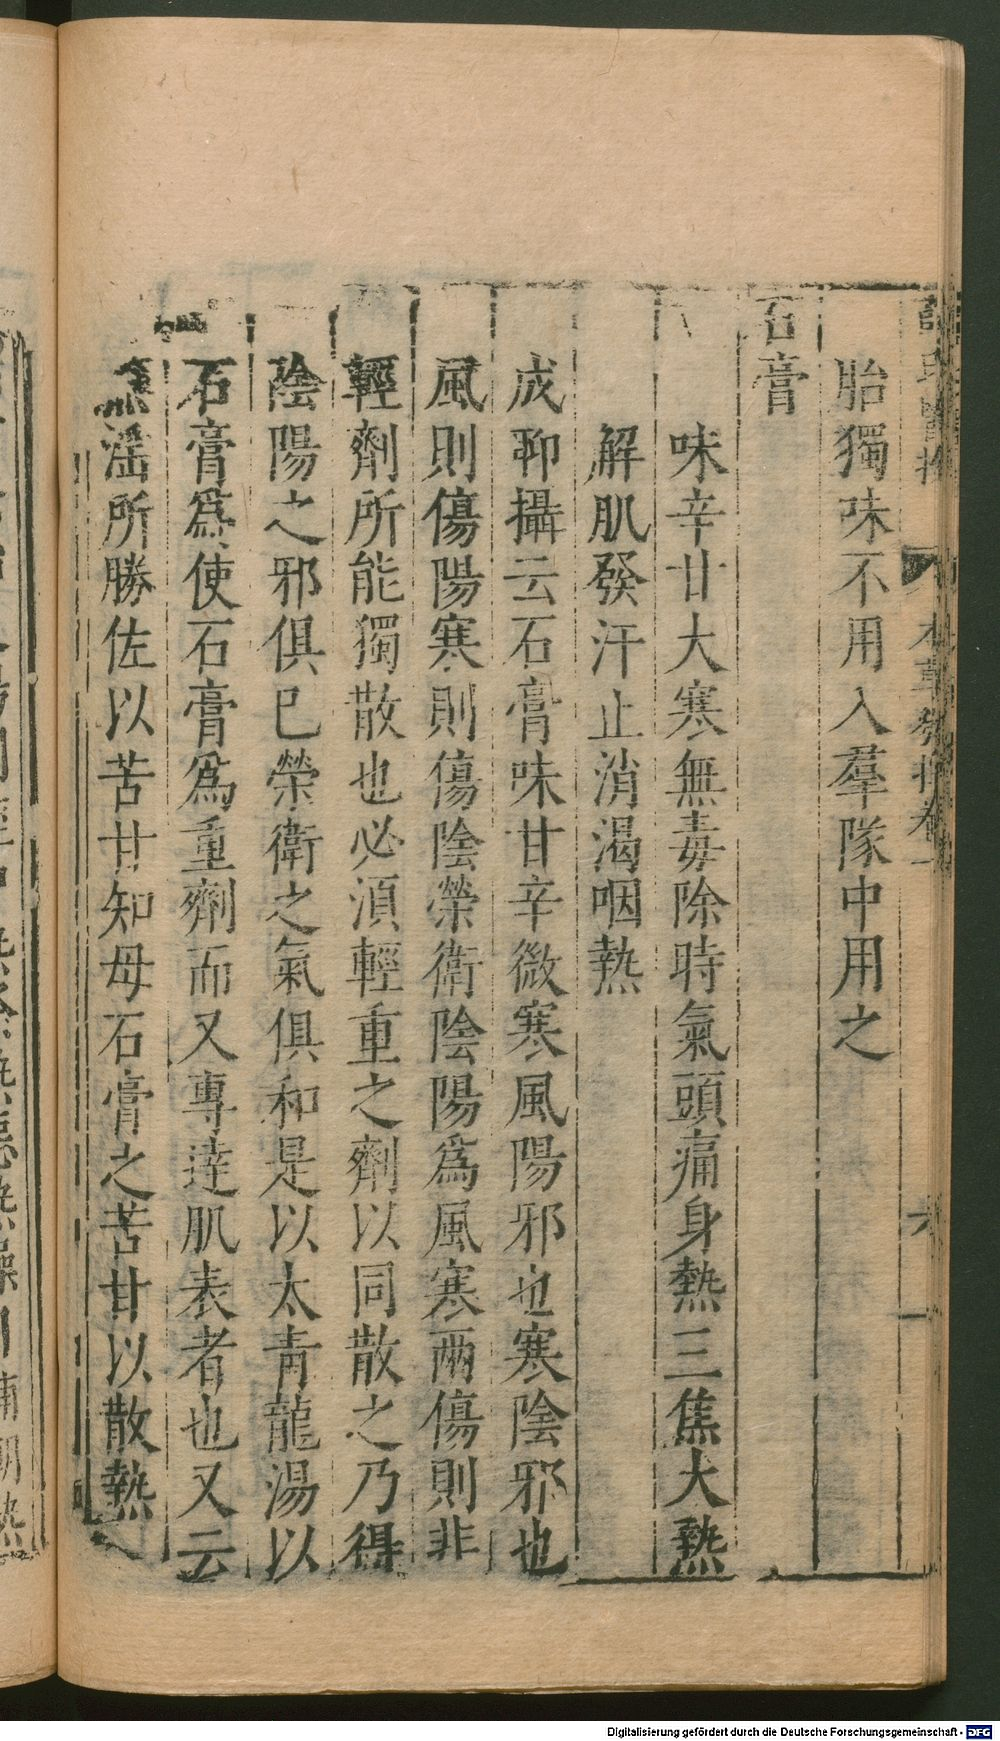 胎獨味不用入羣隊中用之
石膏
味辛甘大寒無毒除時氣頭痛身熱三焦大熱
解肌發汗止消渴咽熱
成聊攝云石膏味甘辛微寒風陽邪也寒陰邪也
風則傷陽寒則傷陰榮衛陰陽爲風寒兩傷則非
輕劑所能獨散也必須輕重之劑以同散之乃得
陰陽之邪俱已榮衛之氣俱和是以太青龍湯以
石膏爲使石膏爲重劑而又專逹肌表者也又云
淫所勝佐以苦甘知母石膏之苦甘以散熱
Digitalisierung gefördert durch die Deutsche Forschungsgemeinschaft - DFG